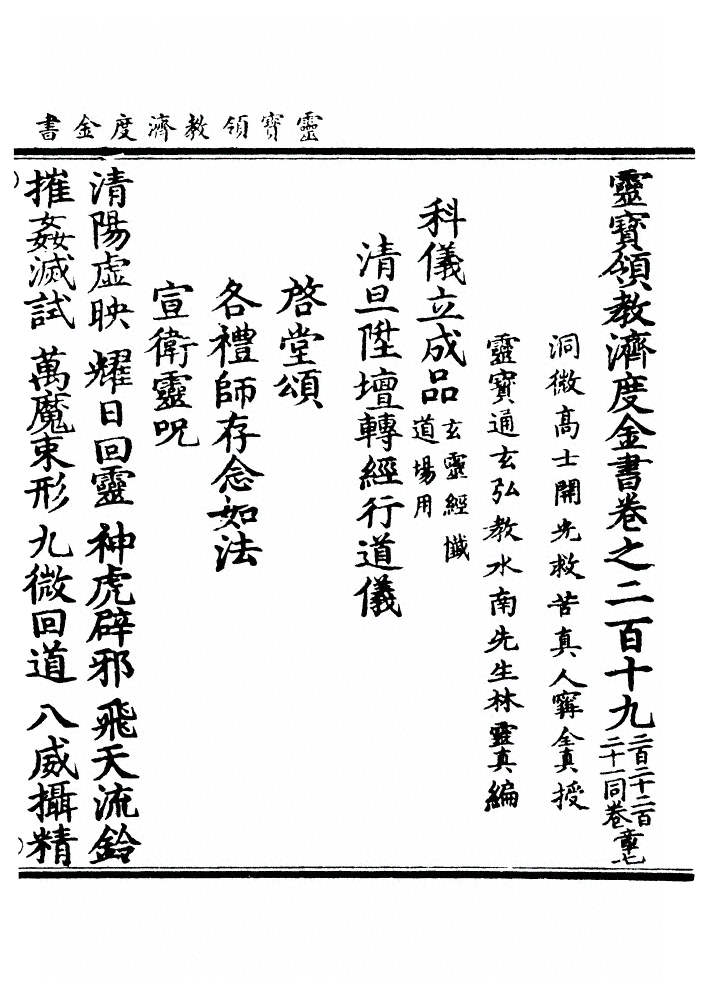 靈寶領教濟度金書
靈寶領教濟度金書卷之二百十九
二百二十二百
二十一同卷
洞微高士開光救苦真人甯全真授
靈寶通玄弘教水南先生林靈真編
科儀立成品
玄靈經懺
道場用
清旦陞壇轉經行道儀
啓堂頌
各禮師存念如法
宣衛靈呪
清陽虛映　耀日回靈　神虎辟邪　飛天流鈴
摧姦滅試　萬魔束形　九微回道　八威攝精